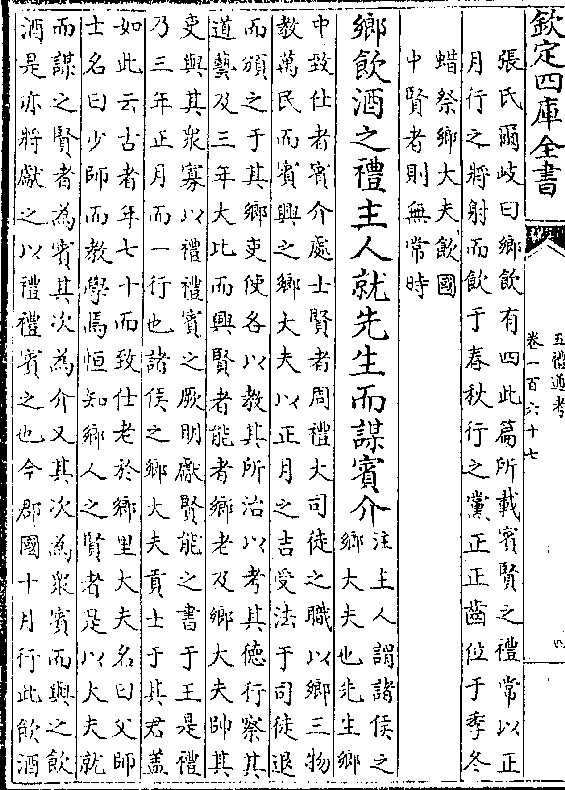 欽定四庫全書
五禮通考
卷一百六十七
四
張氏爾岐曰鄉飲有四此篇所載賓賢之禮常以正
月行之將射而飲于春秋行之黨正正齒位于季冬
蜡祭鄉大夫飲國
中賢者則無常時
鄉飲酒之禮主人就先生而謀賓介注主人謂諸侯之
鄉大夫也先生鄉
中致仕者賓介處士賢者周禮大司徒之職以鄉三物
教萬民而賓興之鄉大夫以正月之吉受法于司徒退
而頒之于其鄉吏使各以教其所治以考其德行察其
道藝及三年大比而興賢者能者鄉老及鄉大夫帥其
吏與其眾寡以禮禮賓之厥明獻賢能之書于王是禮
乃三年正月而一行也諸侯之鄉大夫貢士于其君蓋
如此云古者年七十而致仕老於鄉里大夫名曰父師
士名曰少師而教學焉恒知鄉人之賢者是以大夫就
而謀之賢者為賓其次為介又其次為眾賓而與之飲
酒是亦將獻之以禮禮賓之也今郡國十月行此飲酒